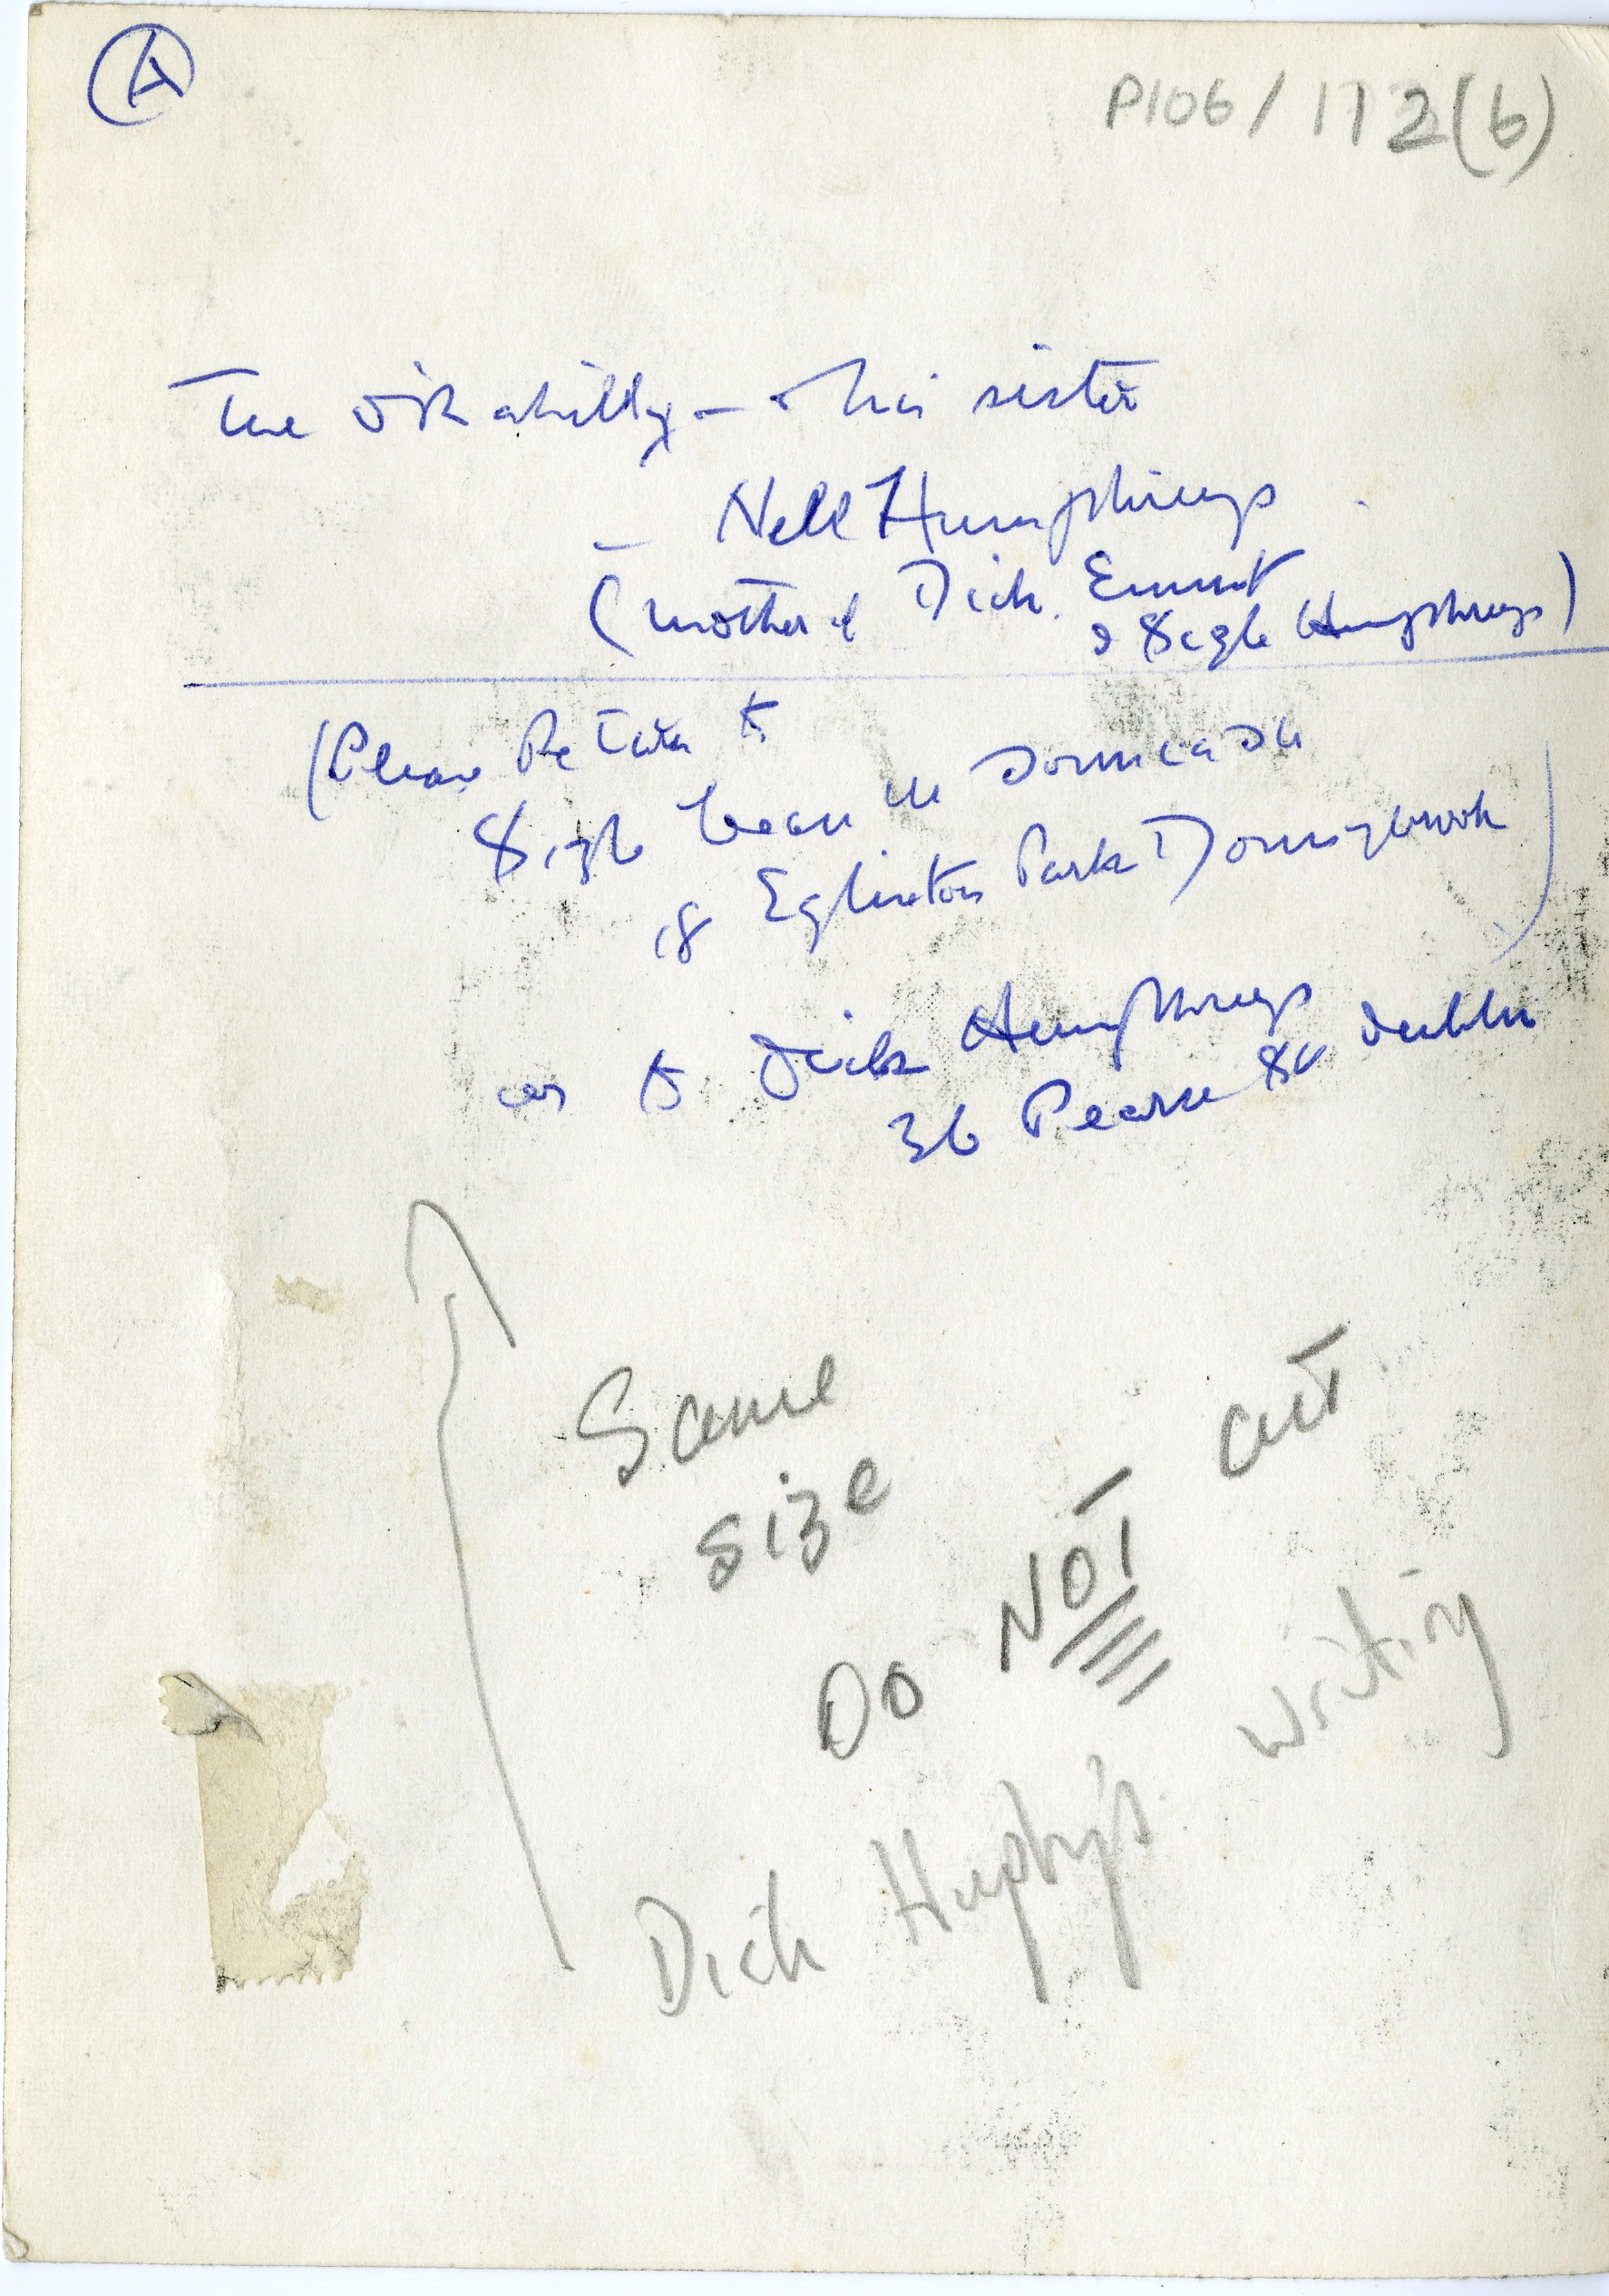 A
P106/112(b)
The O'Rahilly – & his sister
– Nell Humphreys
(mother of Dick. Emmet
& Sighle Humphreys)
(Please Return to
Sighle Bean Uí Donncadha
18 Eglinton Park Donnybrook)
or to Dick Humphreys
36 Pearse St Dublin
Same
size
Do NOT cut
Dick Huphy's writing